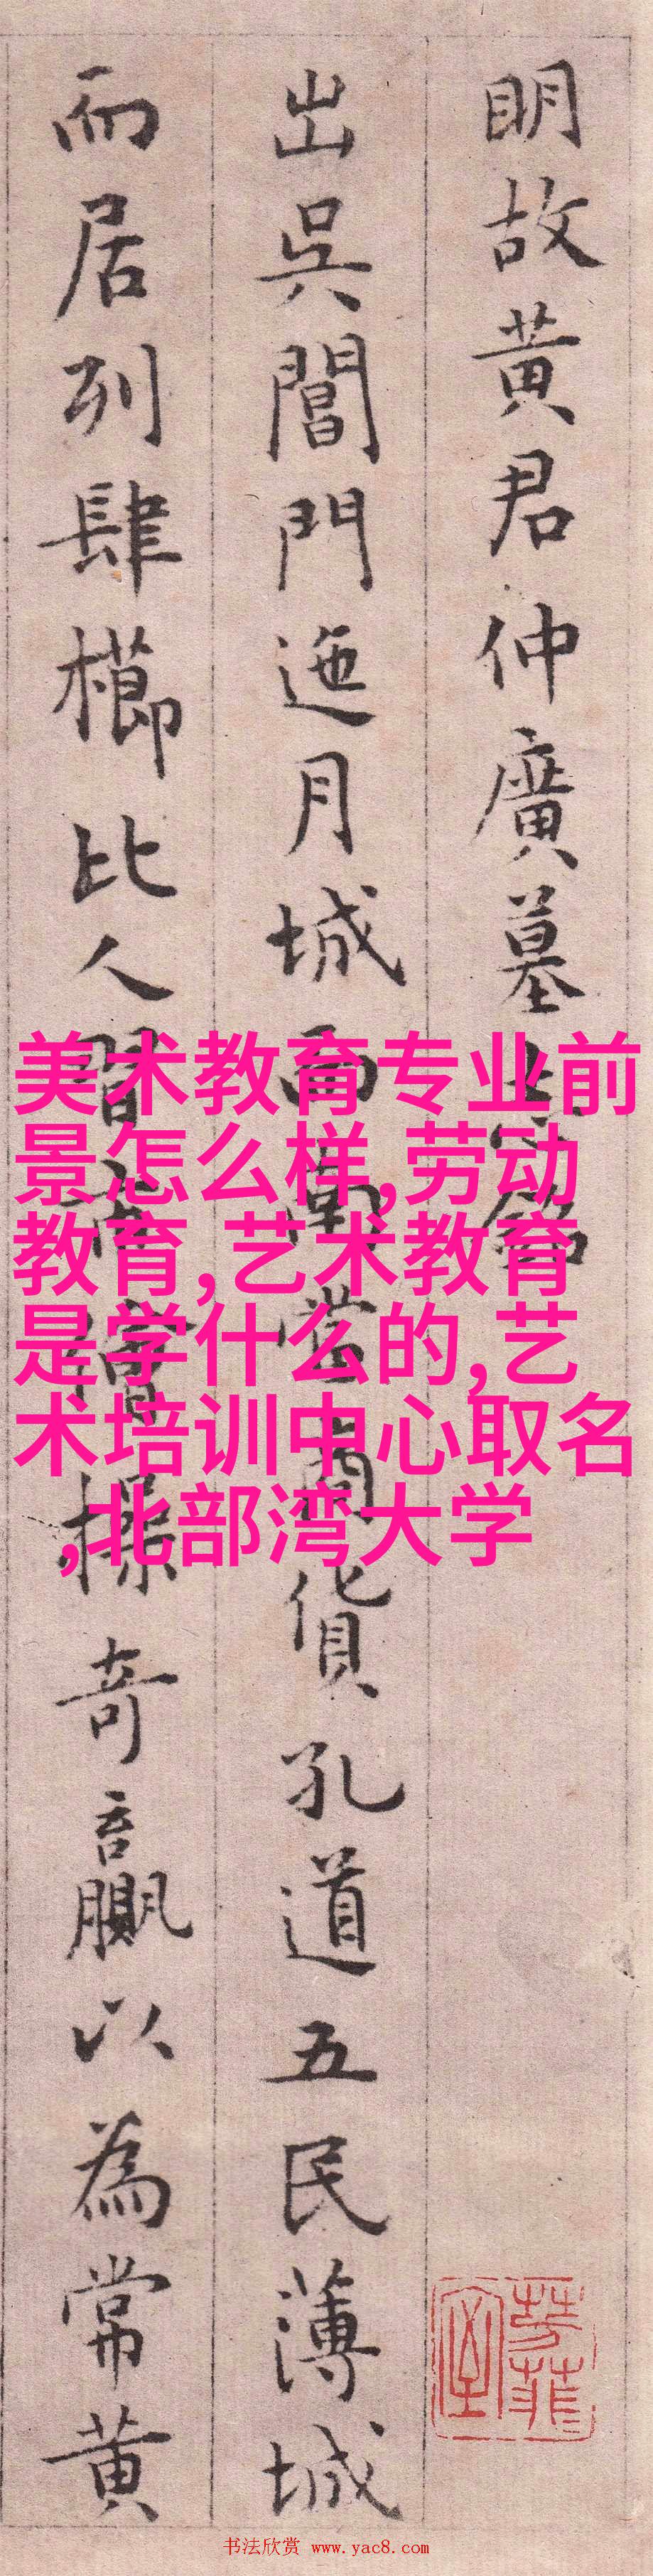 明故黄君仲廣墓志銘
出吳閶門迤月城而南當商貨孔道五民薄城
而居列肆櫛比人習市儈操奇贏以為常黄
美术教育专业前
景怎么样,劳动
教育,艺术教育
是学什么的,艺
术培训中心取名
,北部湾大学
书法欣赏 www.yac8.com